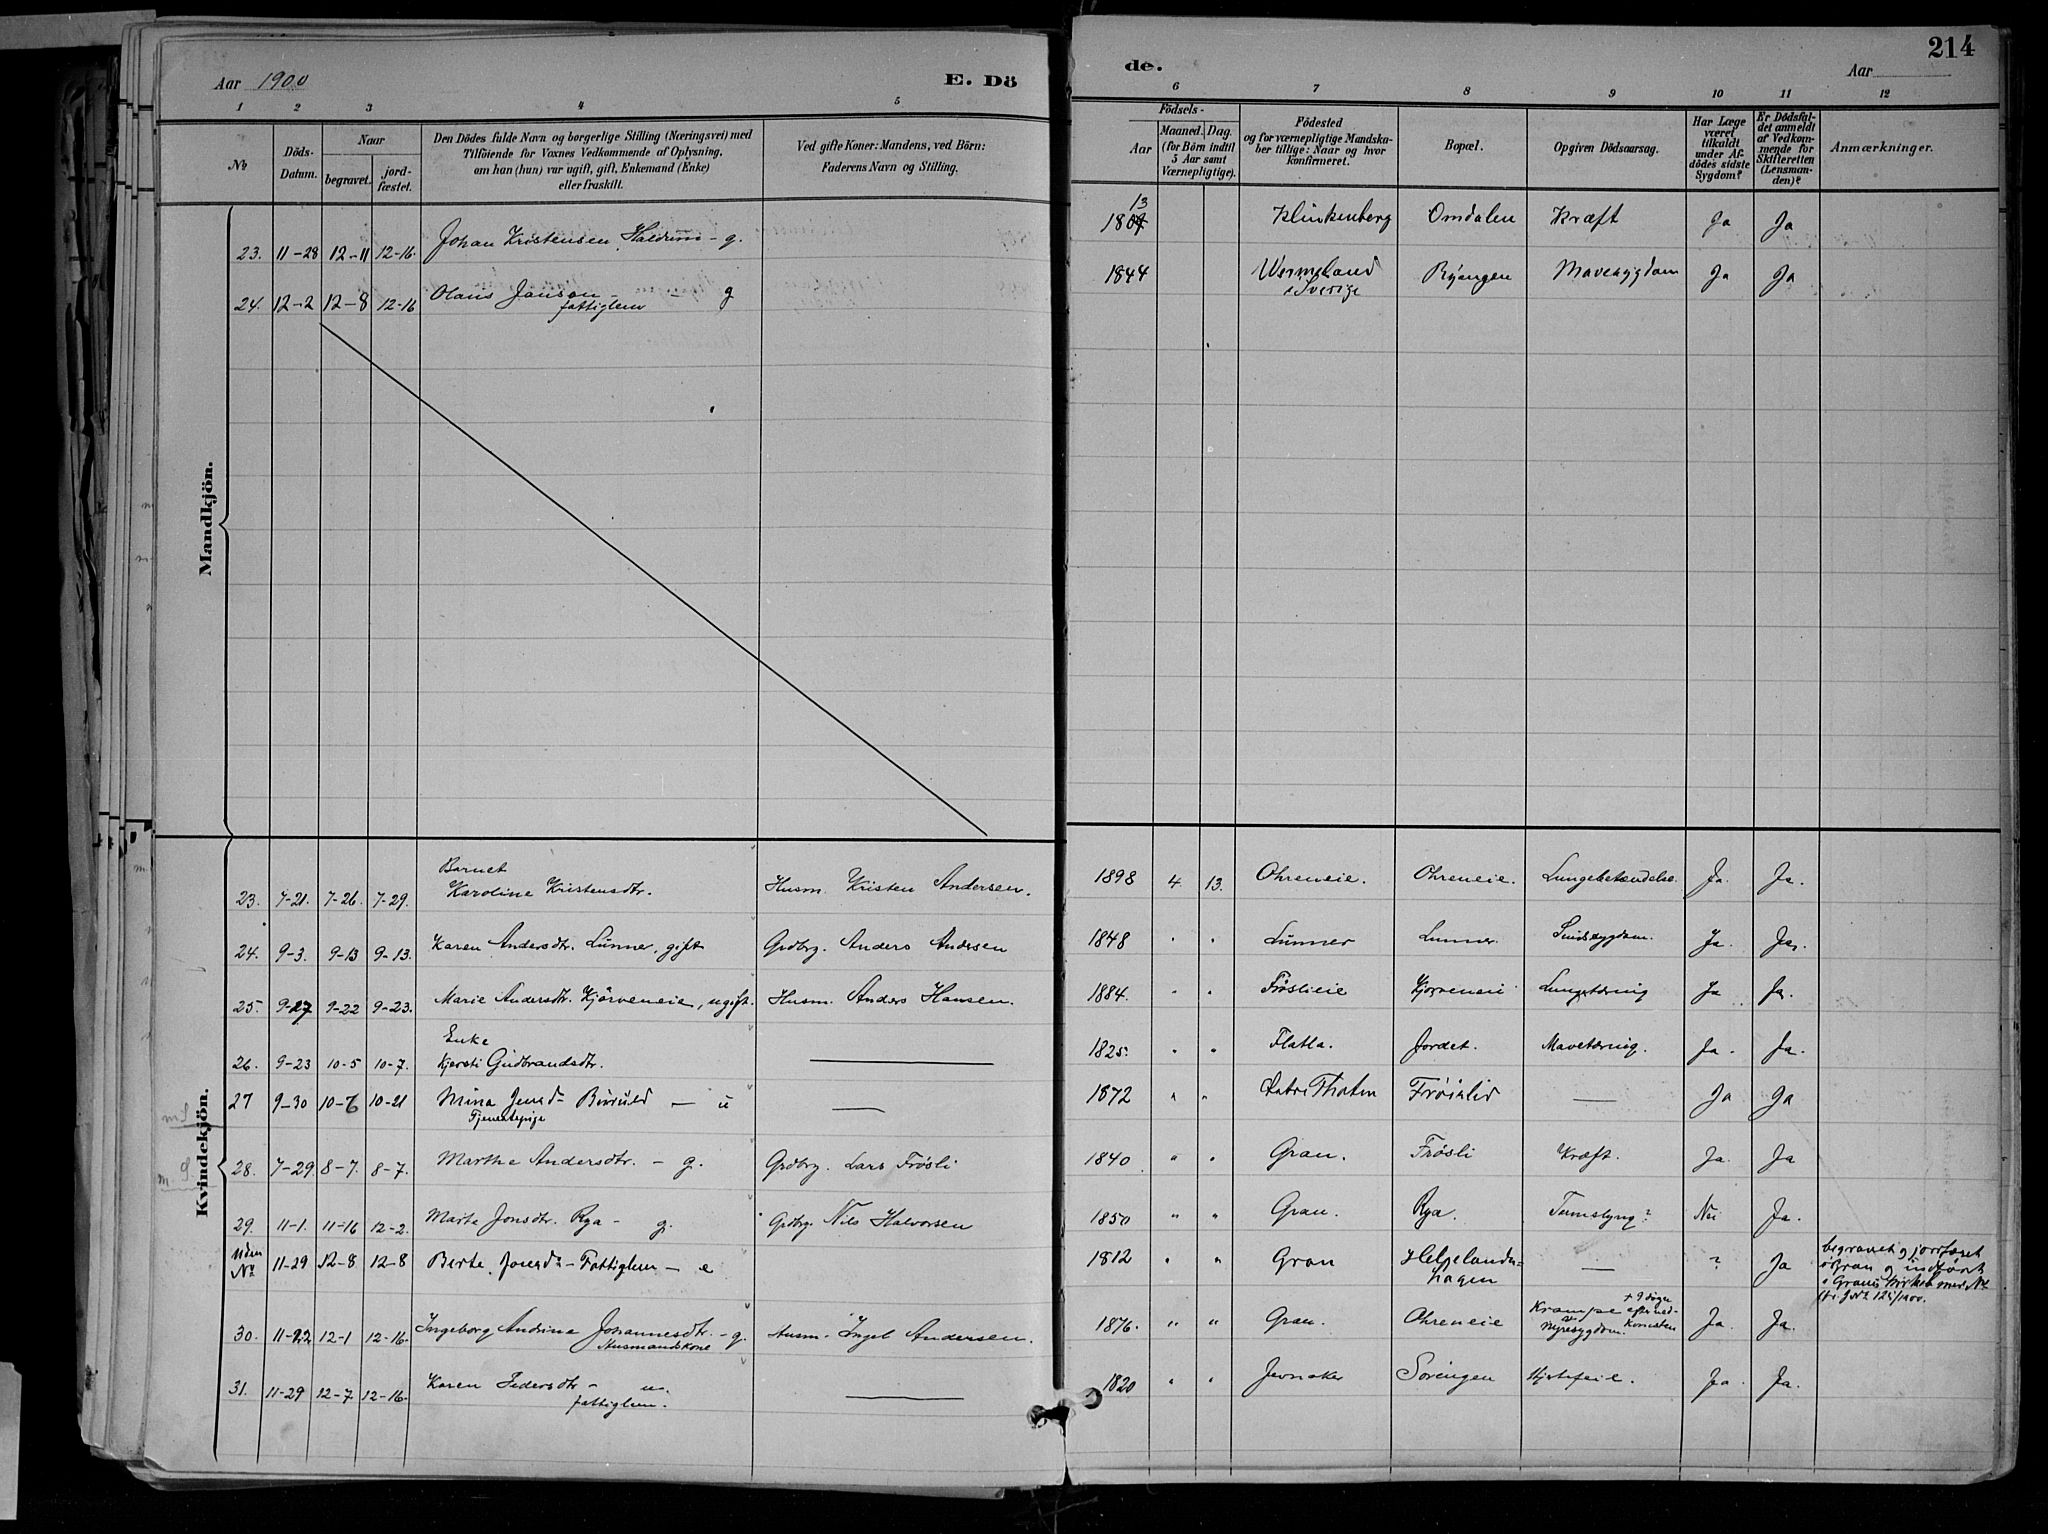 Aar 1900
E. Dö
de.
214
Aar
1 2 3 4 5 6 7 8 9 10 11 12
No
Döds-Datum.
Naar
begravet.
jord-fæstet.
Den Dödes fulde Navn og borgerlige Stilling (Næringsvei) med
Tilföiende for Voxnes Vedkommende af Oplysning,
om han (hun) var ugift, gift, Enkemand (Enke)
eller fraskilt.
Ved gifte Koner: Mandens, ved Börn:
Faderens Navn og Stilling.
Födsels-
Aar
Maaned. Dag.
(for Börn indtil
5 Aar samt
Værnepligtige).
Födested
og for værnepligtige Mandska-
ber tillige: Naar og hvor
konfirmeret.
Bopæl.
Opgiven Dödsaarsag.
Har Læge
været
tilkaldt
under Af-
dödes sidste
Sygdom?
Er Dödsfal-
det anmeldt
af Vedkom-
mende for
Skifteretten
(Lensman-
den)?
Anmærkninger.
Mandkjön.
23. 11-28 12-11 12-16. Johan Kristensen Haldum - g. 1813 Klinkenberg Omdalen Kræft Ja Ja
24. 12-2 12-8 12-16 Olaus Janson - - g 1844 Wermeland Ryangen Mavesygdom Ja Ja
fattiglem
i Sverige
Kvindekjön.
Barnet
23. 7-21. 7-26. 7-29. Karoline Kristensdtr. Husm. Kristen Andersen. 1898 4. 13. Ohreneie. Ohreneie. Lungebetændelse. Ja. Ja.
24. 9-3. 9-13 9-13. Karen Andersdtr. Lunner, gift Grdbrg. Anders Andersen 1848 " " Lunner Lunner. Sindssygdom. Ja. Ja.
25. 9-17 9-22 9-23. Marie Andersdtr. Kjørveneie, ugift. Husm. Anders Hansen. 1884. " " Frøslieie Kjørveneie Lungetæring Ja Ja.
Enke
26. 9-23 10-5 10-7. Kjersti Gudbrandsdtr. 1825. " " Flatla. Jordet. Mavetæring. Ja. Ja.
27 9-30 10-6 10-21 Mina Jensd- — u — 1872 " " Thoten Frøislid — Ja Ja
Tjenestepige
28. 7-29. 8-7. 8-7. Marthe Andersdtr. - g. Grdbrg. Lars Frøsli 1840 " " Gran. Frøsli Kræft. Ja. Ja
29. 11-1. 11-16 12-2. Marte Jonsdtr. Rya - g. Grdbrg. Nils Halvorsen 1850 " " Gran. Rya. ? Nei Ja.
Uden
No 11-29 12-8 12-8 Berte Jonsd- Fattiglem - e 1812 " " Gran Helgelands=
hagen — ? Ja
begravet og jordfæstet
i Gran og indført
i Grans Kirkebog med No
30. 11-22 12-1 12-16. Ingeborg Andrine Johannesdtr. - g. Husm. Ingel Andersen. 1876. " " Gran. Ohreneie Krampe Ja. Ja.
Husmandskone
Nyresygdom.
+ 9 døgn
efter ned-
komsten
31. 11-29 12-7 12-16. Karen Pedersdtr - u. 1820 " " Jevnaker Sørengen Hjertefeil. Ja. Ja.
fattiglem.